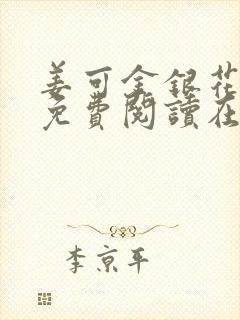 姜可金銀花
免費閱讀在
李京平